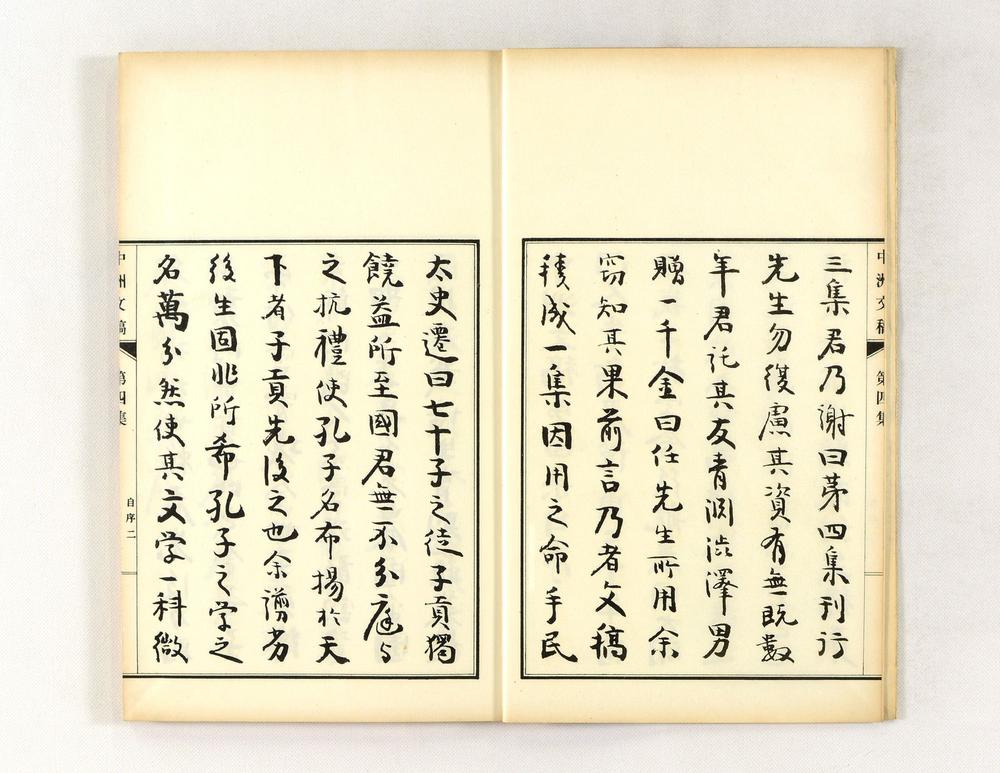 三集君乃謝曰茅四集刊行
先生勿復慮其資有無既數
年君託其友青淵澁澤男
贈一千金曰任先生所用余
窃知其果前言乃者文稿
積成一集因用之命手民
太史遷曰七十子之徒子貢獨
饒益所至國君無不分庭与
之抗禮使孔子名布揚於天
下者子貢先後之也余謭劣
後生固非所希孔子之学之
名萬分然使其文学一科微
中洲文稿
第四集
中洲文稿
第四集
自序二